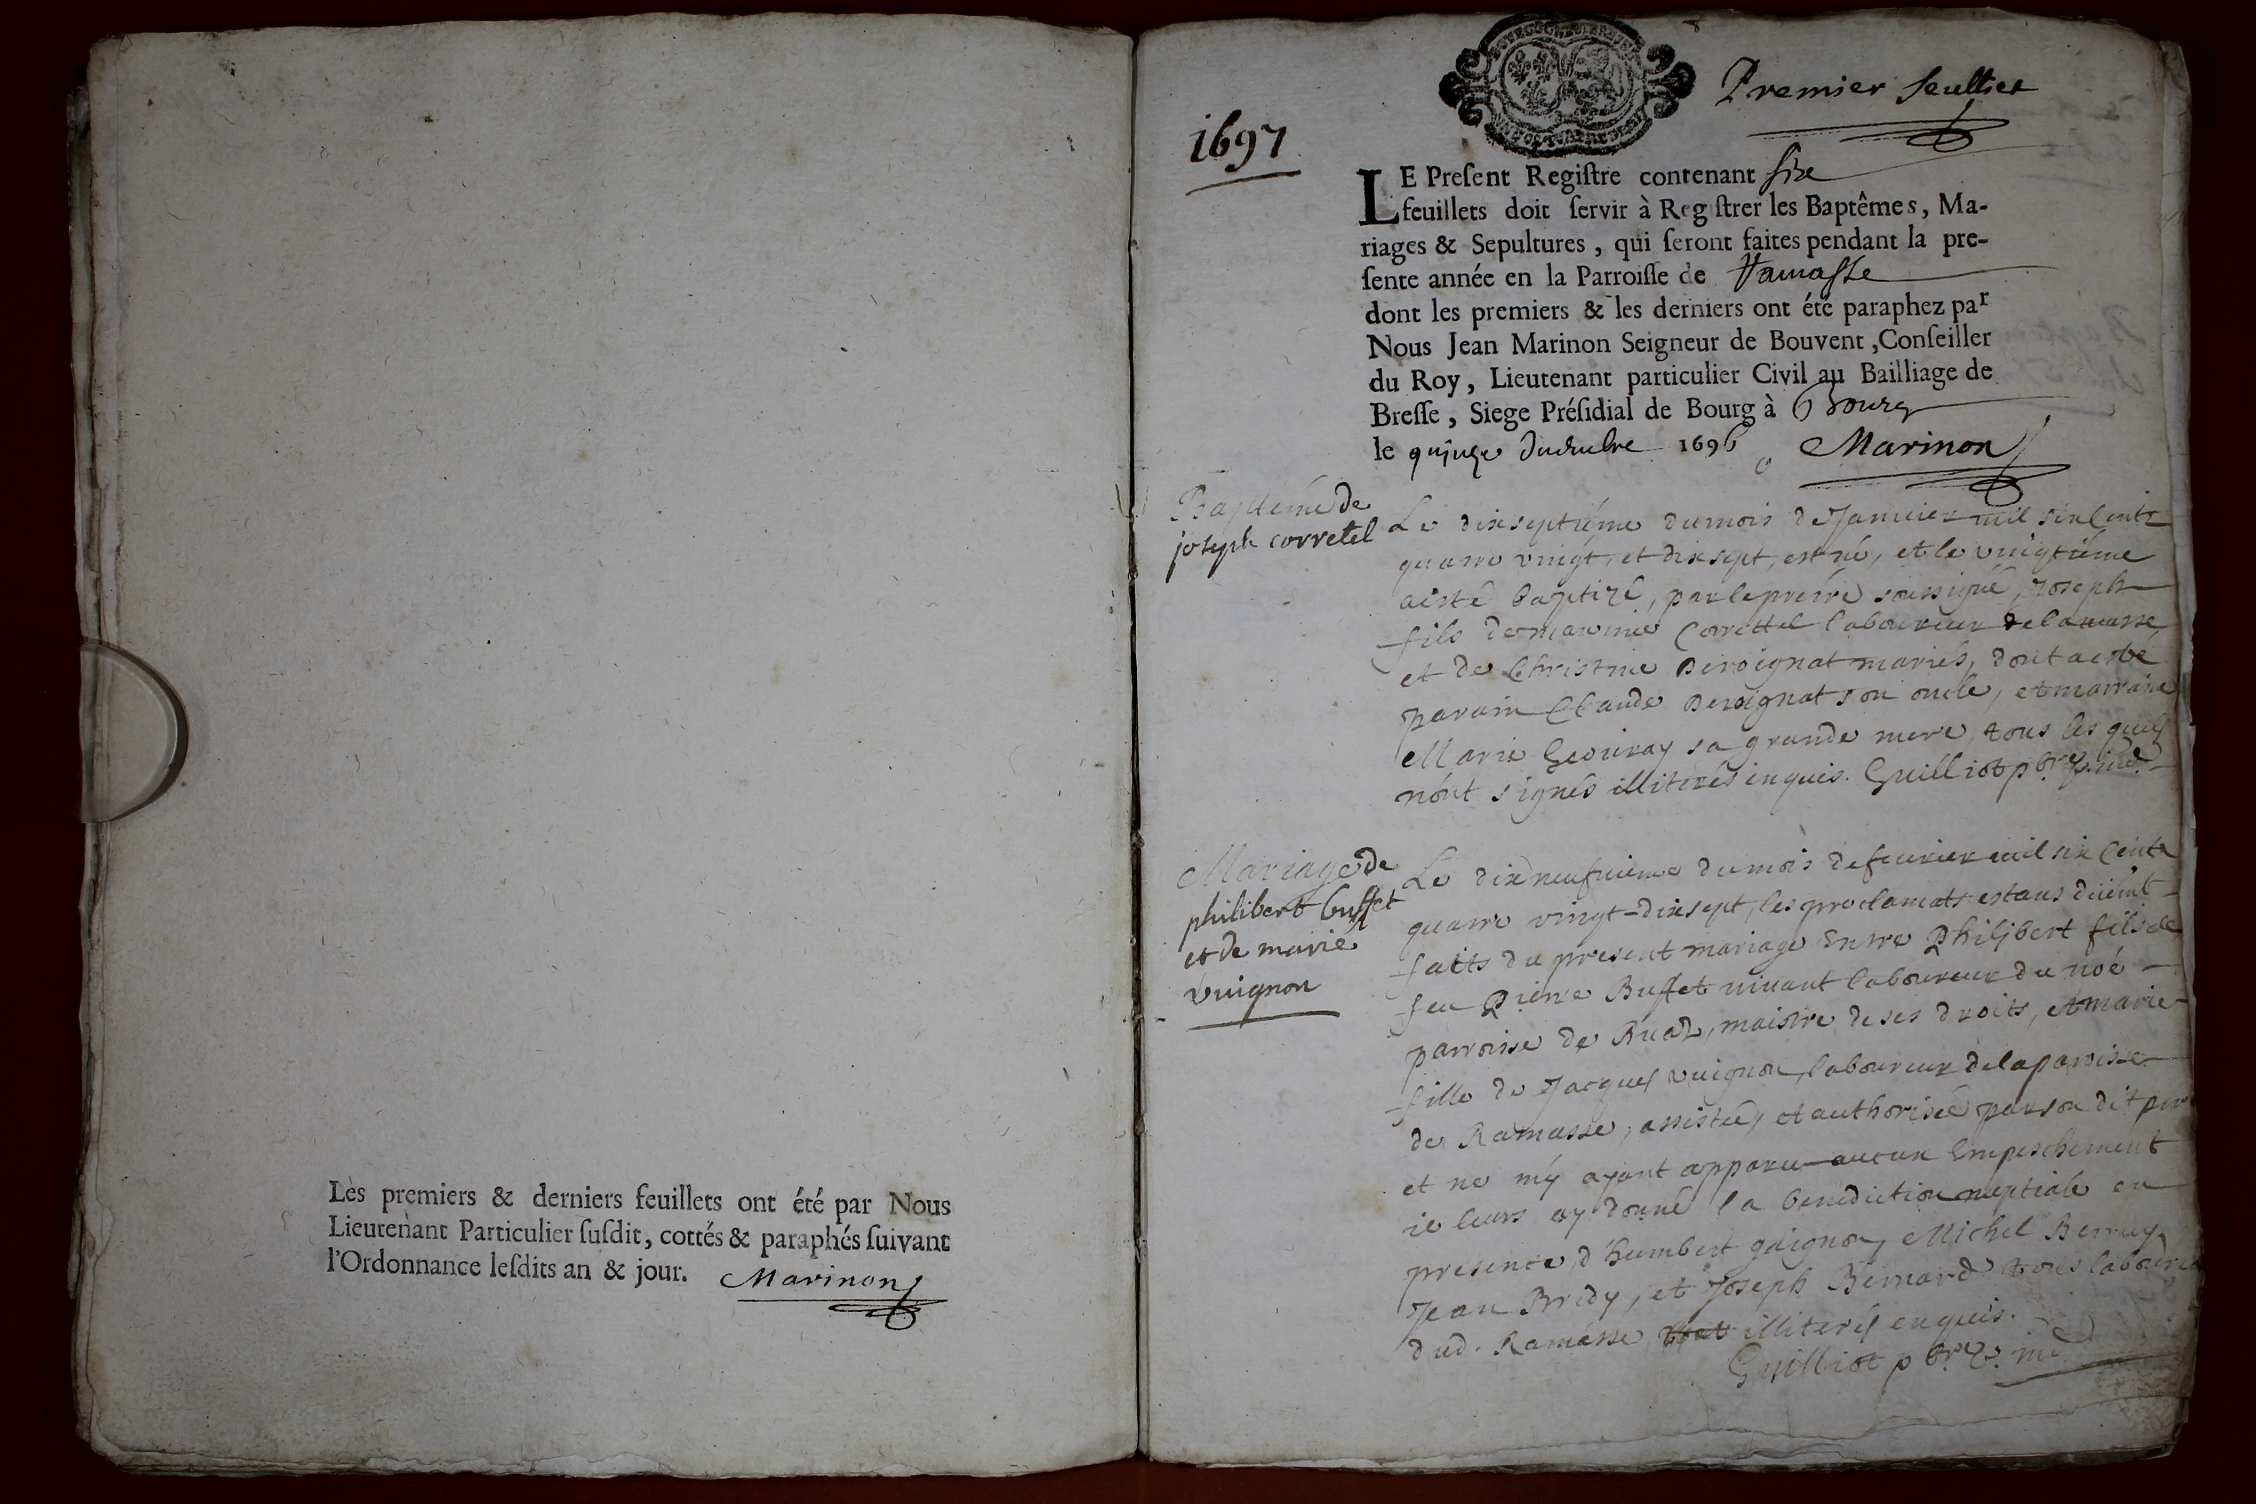 Les premiers & derniers feuillets ont été par Nous
Lieutenant Particulier ſuſdit, cottés & paraphés ſuivant
l'Ordonnance leſdits an & jour. Marinon
1697
Premier feulliet
LE Preſent Regiſtre contenant ſix
feuillets doit ſervir à Reg ſtrer les Baptêmes, Ma-
riages & Sepultures, qui ſeront faites pendant la pre-
ſente année en la Parroiſſe de Ramaſſe
dont les premiers & les derniers ont été paraphez par
Nous Jean Marinon Seigneur de Bouvent, Conſeiller
du Roy, Lieutenant particulier Civil au Bailliage de
Breſſe, Siege Préſidial de Bourg à Bourg
le quinze 1696 Marinon
Baptéme de
joseph corretel
Le dixseptiéme du mois de Janvier mil six Cents
quatre vingt, et dixsept, est né, et le vingtiéme
a esté baptizé, par le prétre soussigné, Joseph
fils de Correttel laboureur de
et de Christine Beroignat mariés, dont a esté
parain Claude Beroignat son oncle, et marraine
Marie sa grande mere, tous les quels
n'ont signés illiterés enquis. Guilliot pbre
Mariage de
philibert buffet
et de marie
vuignon
Le dixneufvieme du mois de fevrier mil six Cents
quatre vingt-dixsept, les proclamats estans duëmt
faits du present mariage Entre Philibert fils de
feu Pierre Buffet vivant laboureur du noé
parroisse de maistre de ses droits, et marie
fille de Jacques vuignon, laboureur de la paroisse
de Ramasse, assistée, et authorisée par son dit per
et ne m'y ayant apparu aucun Empeschement
ie leurs ay donné la benediction nuptiale en
presence d'humbert guignon, Michel Berruy
Jean Bridy, et Joseph Bernard tous laboure
dud. Ramasse illiterés enquis.
Guilliot pbre